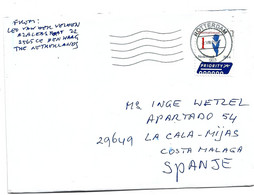 FROM:
LEO VAN DER VELDEN
AZALEASTRAAT 22
2565 CE DEN HAAG
THE NETHERLANDS
ROTTERDAM
1
PRIORITY
MS INGE WETZEL
APARTADO 54
29649 LA CALA-MIJAS
COSTA MALAGA
SPANJE